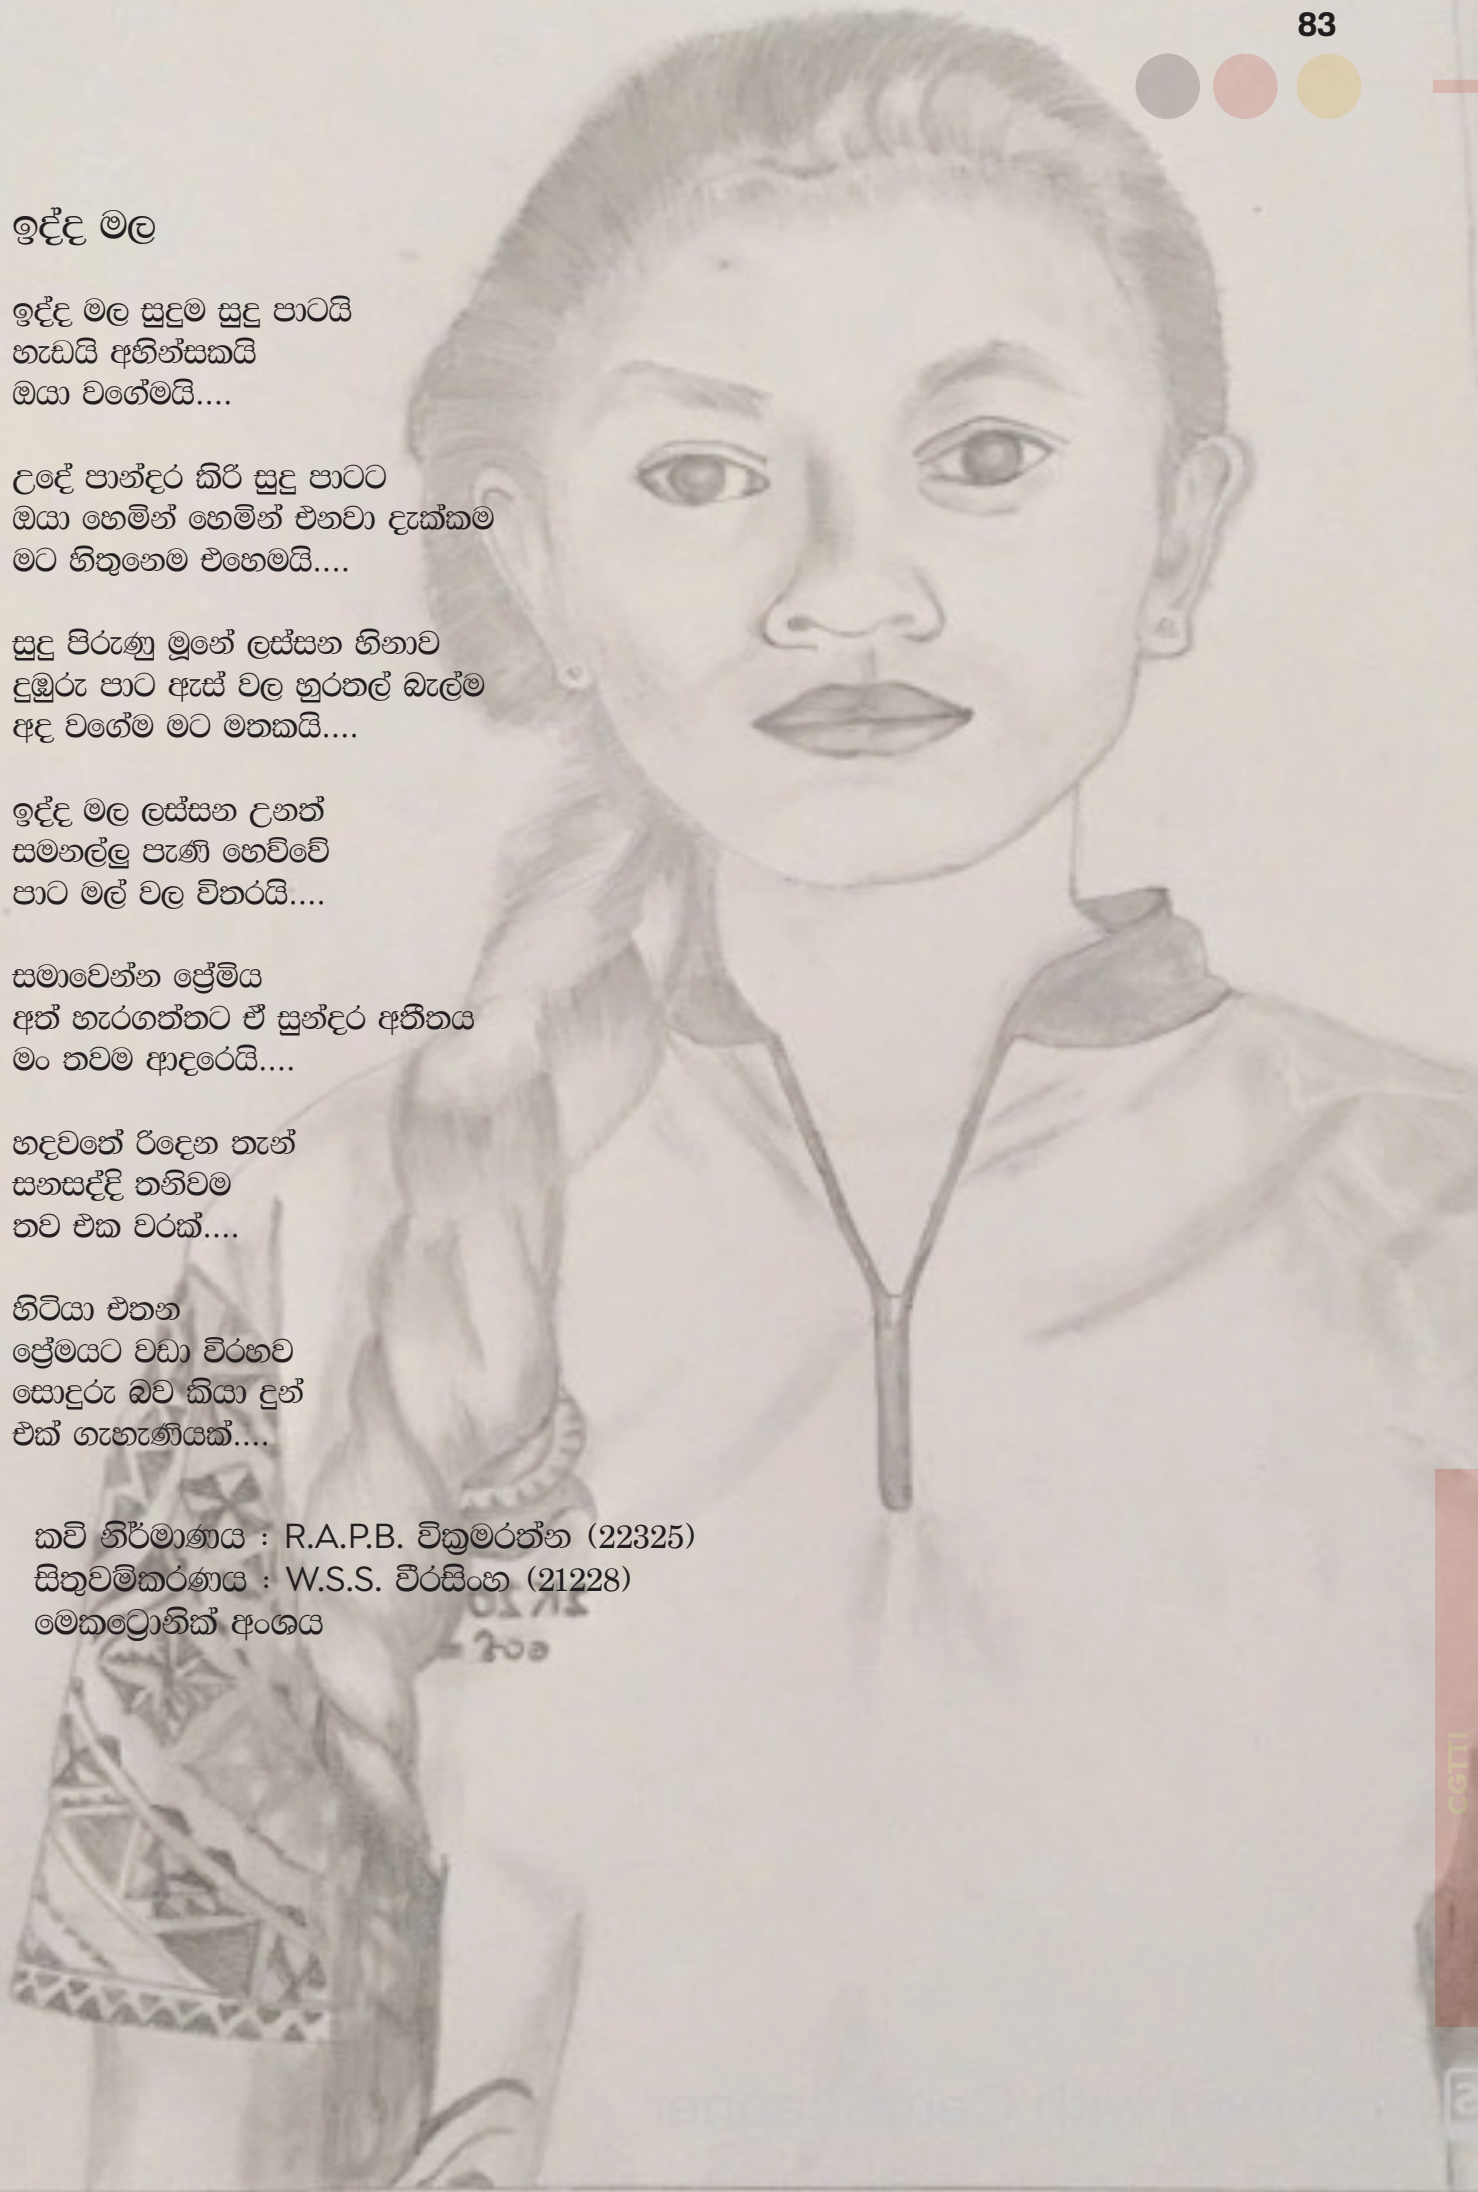 83
ඉද්ද මල
ඉද්ද මල සුදුම සුදු පාටයි
හැඩයි අහින්සකයි
ඔයා වගේමයි....
උදේ පාන්දර කිරි සුදු පාටට
ඔයා හෙමින් හෙමින් එනවා දැක්කම
මට හිතුනෙම එහෙමයි....
සුදු පිරුණු මූනේ ලස්සන හිනාව
දුඹුරු පාට ඇස් වල හුරතල් බැල්ම
අද වගේම මට මතකයි....
ඉද්ද මල ලස්සන උනත්
සමනල්ලු පැණි හෙව්වේ
පාට මල් වල විතරයි....
සමාවෙන්න ප්‍රේමිය
අත් හැරගත්තට ඒ සුන්දර අතීතය
මං තවම ආදරෙයි....
හදවතේ රිදෙන තැන්
සනසද්දි තනිවම
තව එක වරක්....
හිටියා එතන
ප්‍රේමයට වඩා විරහව
සොඳුරු බව කියා දුන්
එක් ගැහැණියක්....
කවි නිර්මාණය : R.A.P.B. වික්‍රමරත්න (22325)
සිතුවම්කරණය : W.S.S. වීරසිංහ (21228)
මෙකට්‍රොනික් අංශය
CGTTI